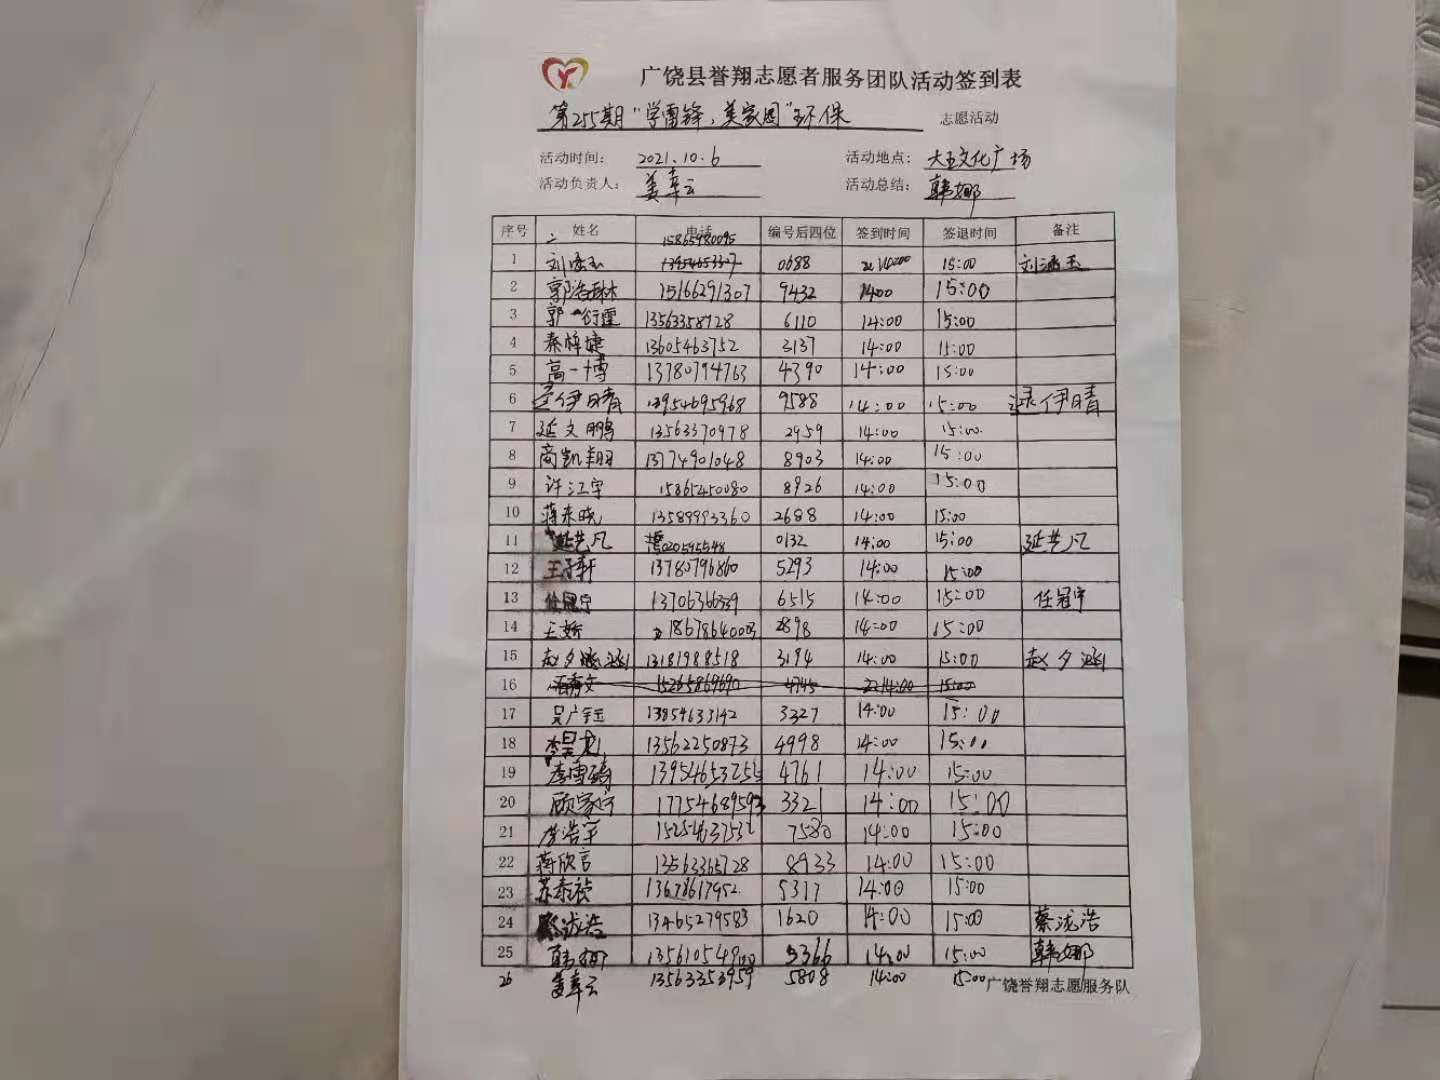 广饶县誉翔志愿者服务团队活动签到表
第255期“学雷锋、美家园”环保 志愿活动
活动时间: 2021.10.6 活动地点: 大王文化广场
活动负责人: 姜幸云 活动总结: 韩娜
序号 姓名 电话 编号后四位 签到时间 签退时间 备注
15865480095
1 刘涵玉 13954653327 0688 14:00 15:00 刘涵玉
2 郭浩琳 15166291307 9432 14:00 15:00
3 郭衍霆 13563358728 6110 14:00 15:00
4 秦梓捷 13605463752 3137 14:00 15:00
5 高一博 13780794763 4390 14:00 15:00
6 逯伊晴 13954695968 9588 14:00 15:00 逯伊晴
7 延文鹏 13563370978 2959 14:00 15:00
8 商凯翔 13774901048 8903 14:00 15:00
9 许江宇 15865450080 8926 14:00 15:00
10 蒋东晓 13589993360 2688 14:00 15:00
11 延艺凡 0132 14:00 15:00 延艺凡
12 王子轩 13780796860 5293 14:00 15:00
13 任冠宇 13706366339 6515 14:00 15:00 任冠宇
14 王娇 2898 14:00 15:00
15 赵夕涵 13181988518 3194 14:00 15:00 赵夕涵
16 15265869690 4745 14:00 15:00
17 吴广金 13854633142 3327 14:00 15:00
18 李昊龙 13562250873 4998 14:00 15:00
19 李雪 4761 14:00 15:00
20 顾家宁 3321 14:00 15:00
21 李浩宇 15254637532 7580 14:00 15:00
22 蒋欣言 13563365728 8933 14:00 15:00
23 苏泰祯 13678617952 5317 14:00 15:00
24 蔡泷浩 13465279583 1620 14:00 15:00 蔡泷浩
25 韩娜 3366 14:00 15:00 韩娜
26 姜幸云 13563353959 5808 14:00 15:00 广饶誉翔志愿服务队